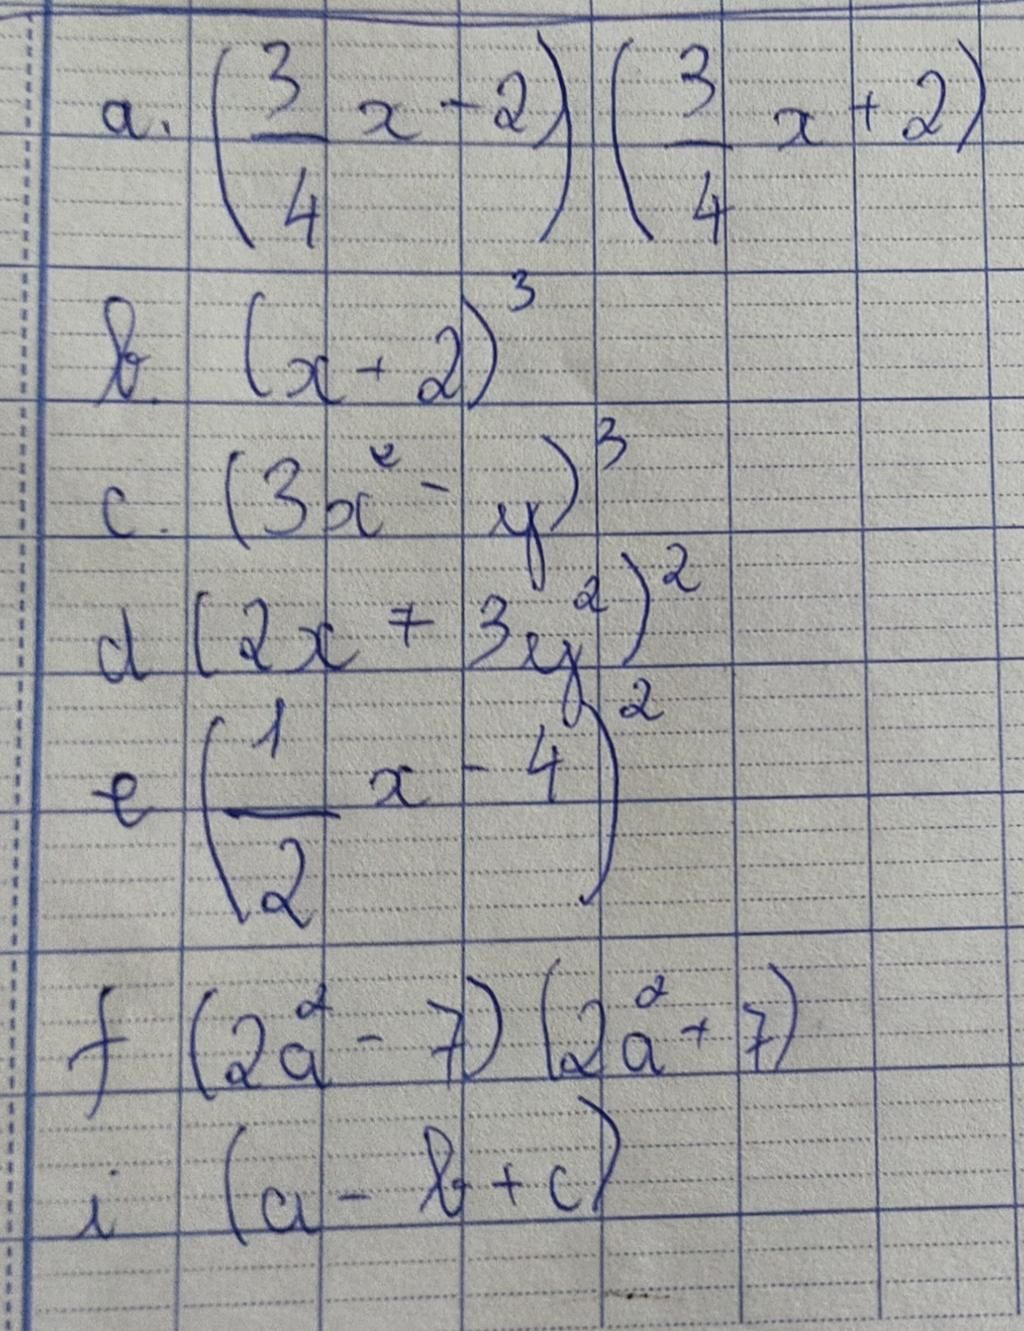 a. (3/4 x - 2) (3/4 x + 2)
b. (x + 2)³
c. (3x² - y)³
d (2x + 3y²)²
e (1/2 x - 4)²
f (2a² - 7) (2a² + 7)
i (a - b + c)